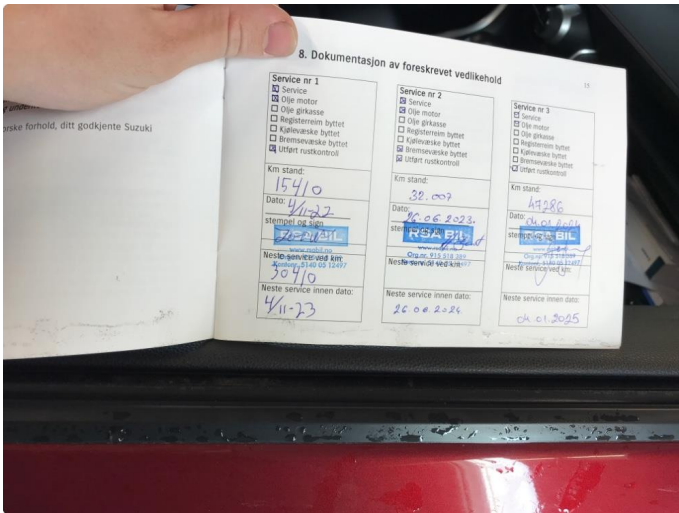 orske forhold, ditt godkjente Suzuki
8. Dokumentasjon av foreskrevet vedlikehold
Service nr 1
Service
Olje motor
Olje girkasse
Registerreim byttet
Kjølevæske byttet
Bremsevæske byttet
Utført rustkontroll
Km stand:
15410
Dato:
4/11-22
stempel og sign
RSA BIL
www.rsabil.no
5140 05 12497
Neste service ved km:
30410
Neste service innen dato:
4/11-23
Service nr 2
Service
Olje motor
Olje girkasse
Registerreim byttet
Kjølevæske byttet
Bremsevæske byttet
Utført rustkontroll
Km stand:
32.007
Dato:
26.06.2023.
stempel og sign
RSA BIL
Org.nr. 915 518 269
5140 05 12497
Neste service ved km:
Neste service innen dato:
26.06.2024.
Service nr 3
Service
Olje motor
Olje girkasse
Registerreim byttet
Kjølevæske byttet
Bremsevæske byttet
Utført rustkontroll
Km stand:
47286
Dato:
04.01.2024
stempel og sign
RSA BIL
5140 05 12497
Neste service ved km:
Neste service innen dato:
04.01.2025